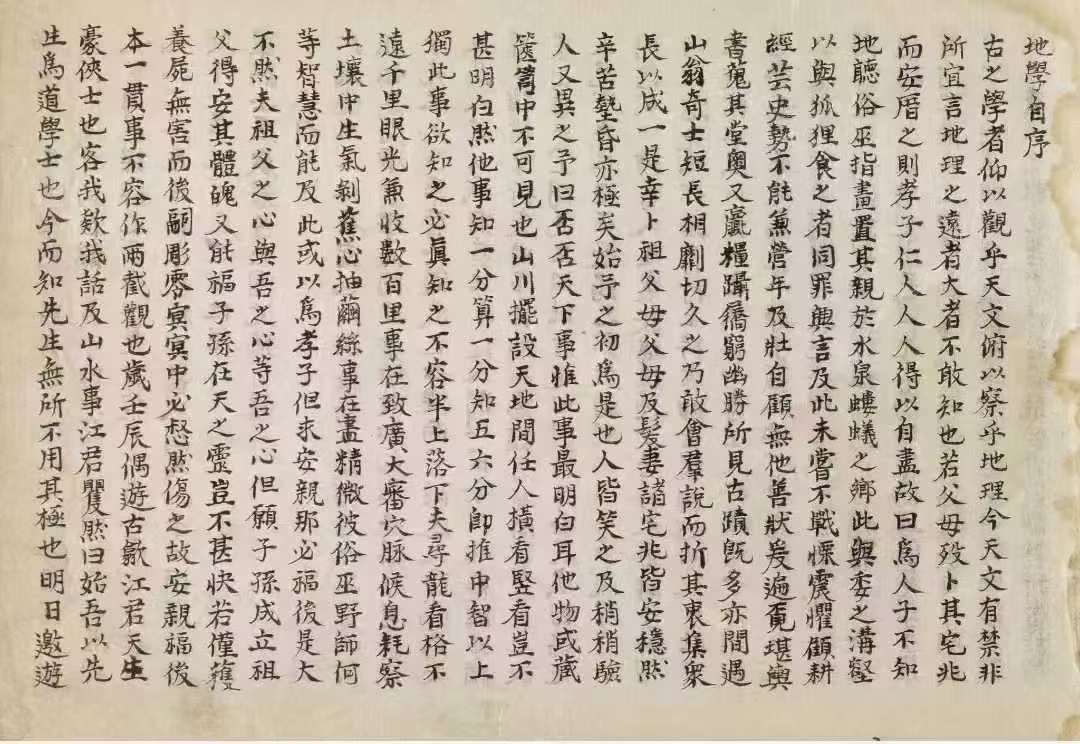 地學自序
古之學者仰以觀乎天文俯以察乎地理今天文有禁非
所宜言地理之遠者大者不敢知也若父母歿卜其宅兆
而安厝之則孝子仁人人人得以自盡故曰爲人子不知
地聽俗巫指畫置其親於水泉螻蟻之鄉此與委之溝壑
以與狐狸食之者同罪興言及此未嘗不戰慄震懼顧耕
經芸史勢不能兼營年及壯自顧無他善狀爰遍覓堪輿
書蒐其堂奧又裹糧躡屩窮幽勝所見古蹟旣多亦間遇
山翁奇士短長相劘切久之乃敢會羣說而折其衷集衆
長以成一是幸卜祖父母父母及髮妻諸宅兆皆安穩然
辛苦墊昏亦極矣始予之初爲是也人皆笑之及稍稍驗
人又異之予曰否否天下事惟此事最明白耳他物或藏
篋笥中不可見也山川擺設天地間任人橫看竪看豈不
甚明白然他事知一分算一分知五六分卽推中智以上
獨此事欲知之必眞知之不容半上落下夫尋龍看格不
遠千里眼光兼收數百里事在致廣大審穴脉候息耗察
土壤中生氣剝蕉心抽繭絲事在盡精微彼俗巫野師何
等智慧而能及此或以爲孝子但求安親那必福後是大
不然夫祖父之心與吾之心等吾之心但願子孫成立祖
父得安其體魄又能福子孫在天之靈豈不甚快若僅獲
養屍無害而後嗣彫零冥冥中必愁然傷之故安親福後
本一貫事不容作兩截觀也歲壬辰偶遊古歙江君天生
豪俠士也客我欵我話及山水事江君瞿然曰始吾以先
生爲道學士也今而知先生無所不用其極也明日邀遊